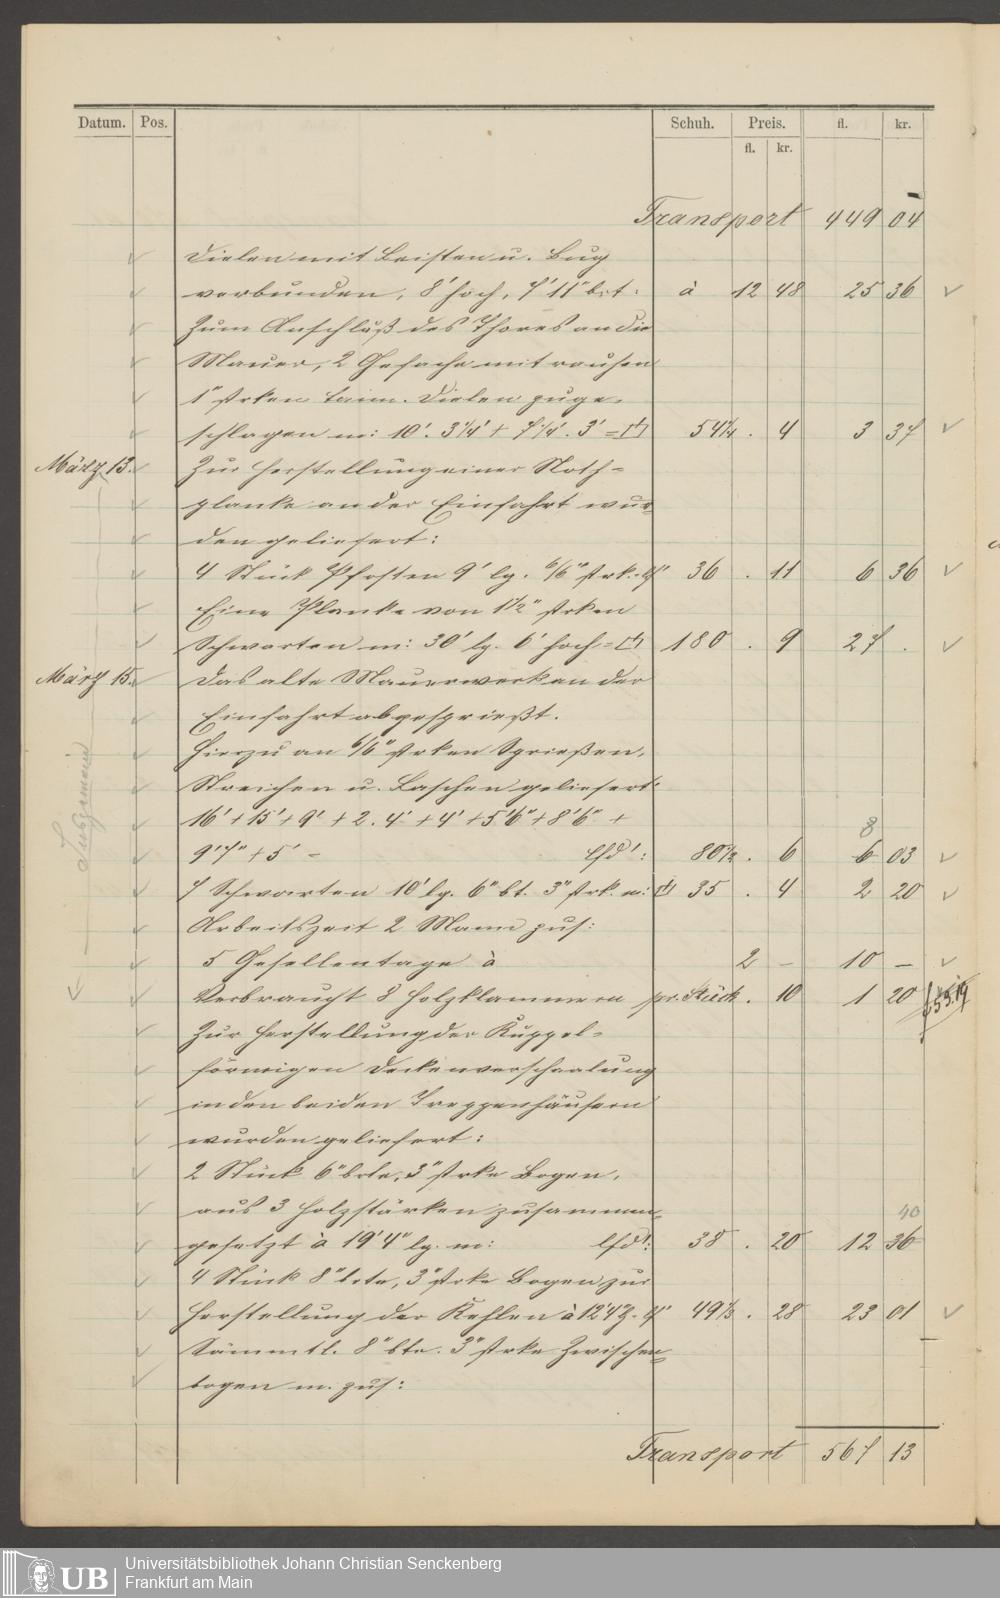 Datum. Pos. Schuh. Preis. fl. kr.
fl. kr.
Transport 449 04
Dielen mit Leisten u. Bug
verbunden, 8' hoch, 7' 11" brt: à 12 48 25 36
Zum Anschluß des Thores an die
Mauer, 2 Gefache mit rauhen
1" strken tann. Dielen zuge-
schlagen m: 10'. 3¼' + 7¼'. 3' = 54¼ . 4 3 37
März 13. Zur Herstellung einer Noth-
planke an der Einfahrt wur-
den geliefert:
4 Stück Pfosten 9' lg. 6/6" strk. 36 . 11 6 36
Eine Planke von 1½" strken
Schwarten m: 30' lg. 6' hoch = 180 . 9 27 .
März 15. Das alte Mauerwerk an der
Einfahrt abgesprießt.
Hierzu an 6/6" strken Sprießen,
Streichen u. Laschen geliefert:
16' + 15' + 9' + 2. 4' + 4' + 5'6" + 8'6" +
8
9'7" + 5' – lfd': 80½ . 6 6 03
7 Schwarten 10' lg. 6" bt. 3" strk. m: 35 . 4 2 20
Arbeitszeit 2 Mann zus:
5 Gesellentage à 2 – 10 –
Verbraucht 8 Holzklammern pr. Stück . 10 1 20
Zur Herstellung der Kuppel-
förmigen Deckenverschaalung
in den beiden Treppenhäusern
wurden geliefert:
2 Stück 6" brte, 3" strke Bogen,
aus 3 Holzstärken zusammen-
40
gesetzt à 19'4" lg. m: lfd': 38 . 20 12 36
4 Stück 8" brte, 3" strke Bogen zur
Herstellung der Kehlen à 12'4" 49⅓ . 28 23 01
Sämmtl. 8" bte. 3" strke Zwischen-
bogen m. zus:
Transport 567 13
Universitätsbibliothek Johann Christian Senckenberg
Frankfurt am Main
UB